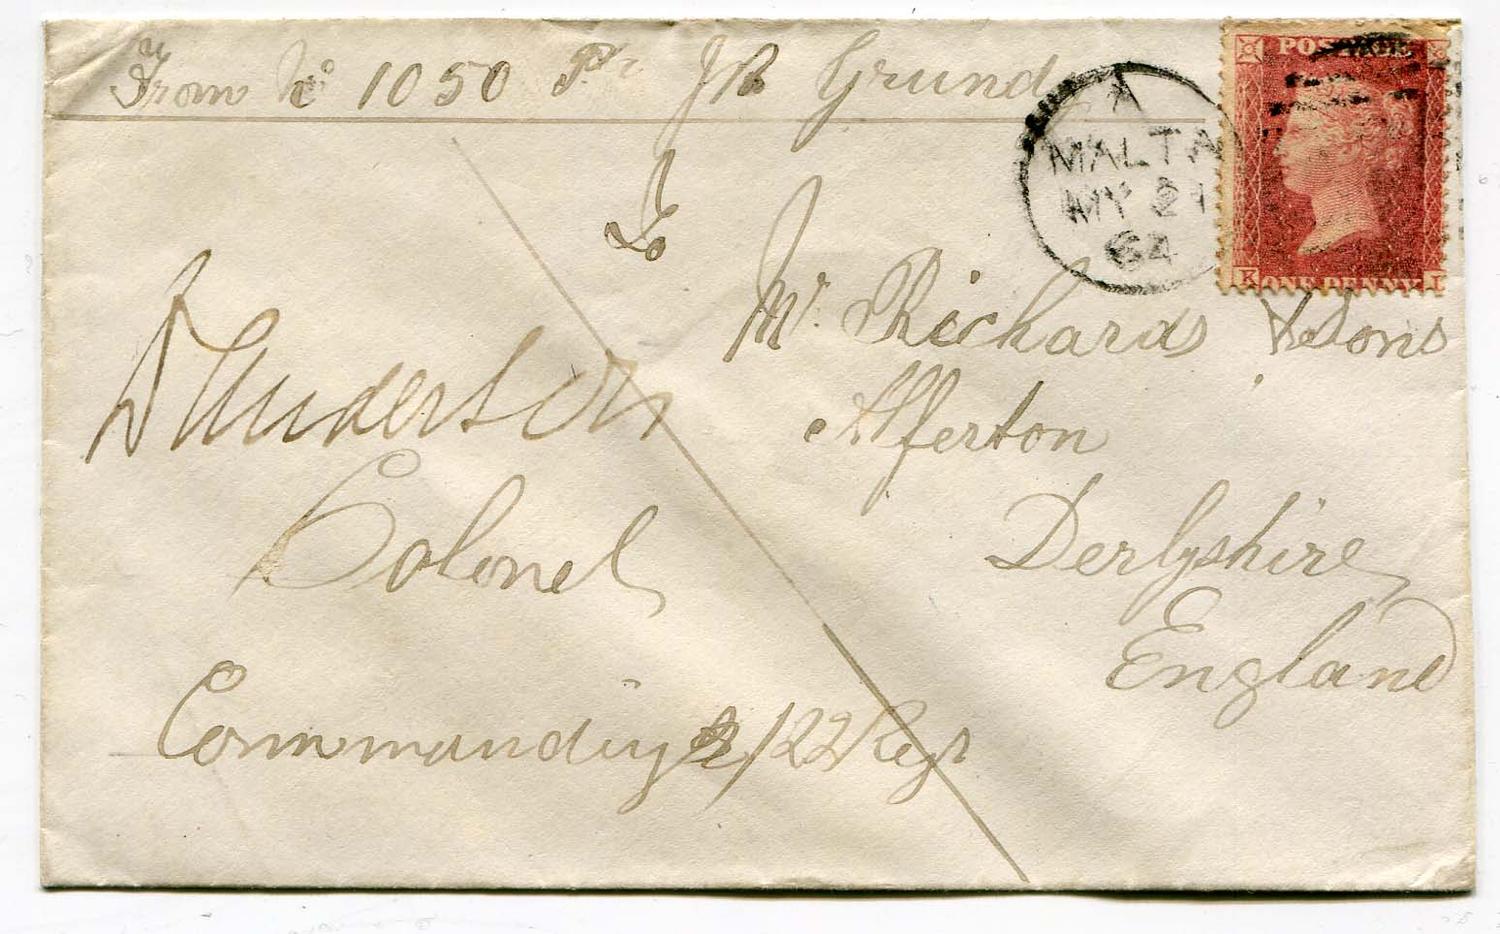 From No 1050 Pt J R Grundy
To
Mr Richards & Sons
Alferton
Derbyshire
England
Anderson
Colonel
Commanding 2/22 Regt
A
MALTA
MY 21
64
POSTAGE
K ONE PENNY I